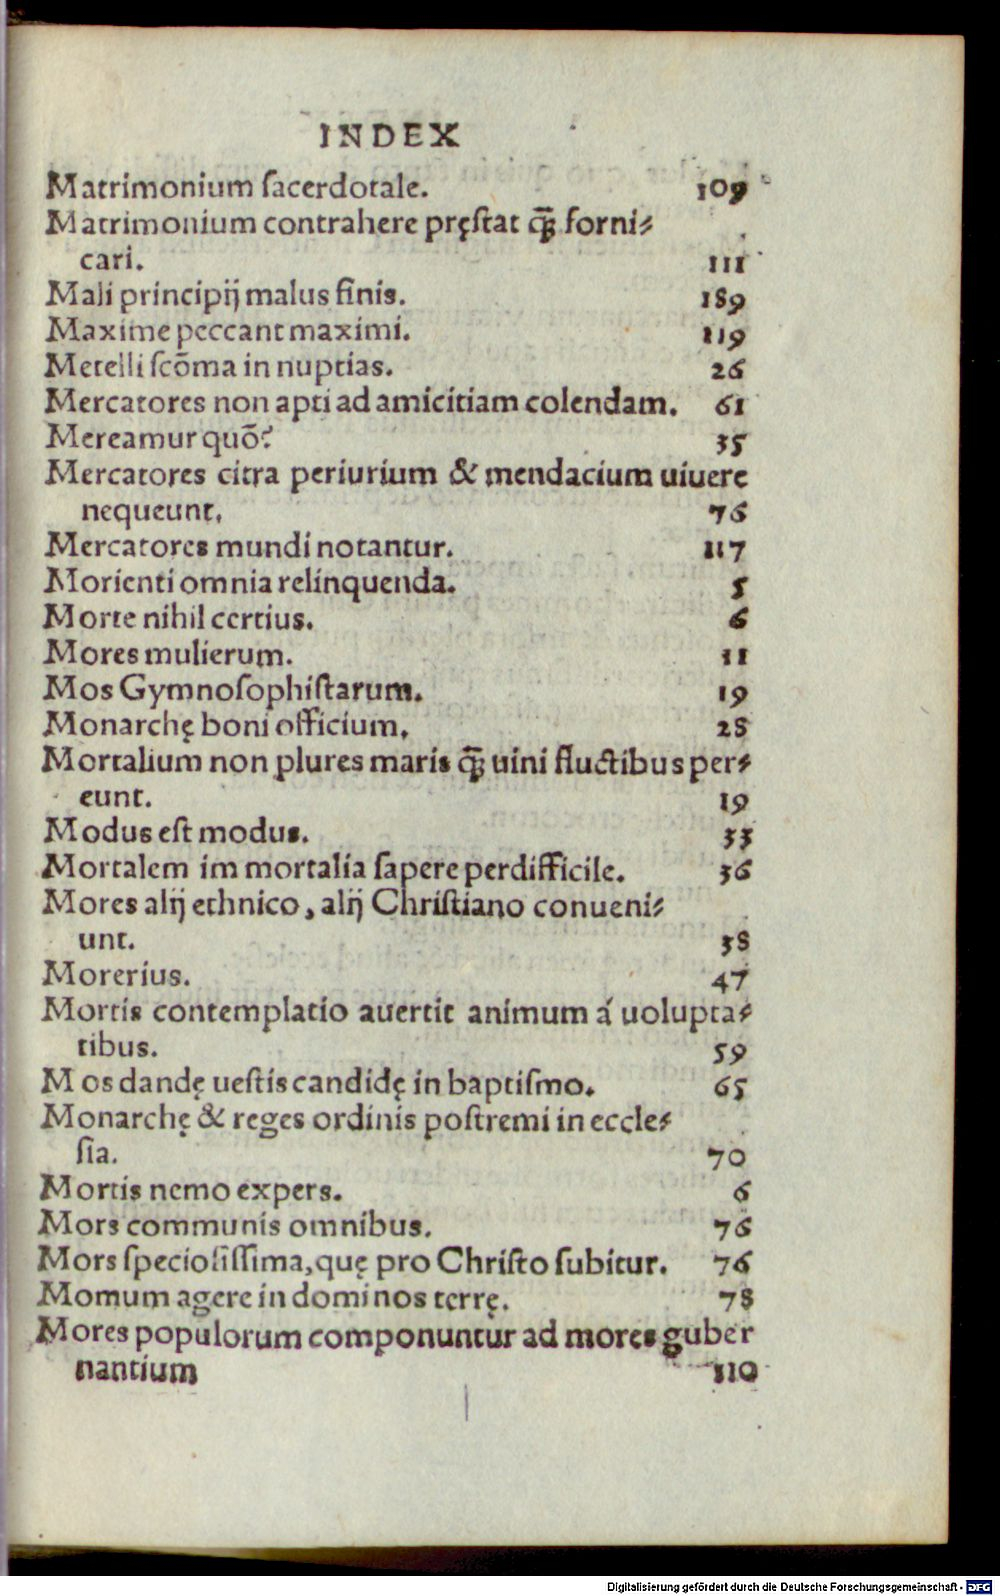 INDEX
Matrimonium ſacerdotale. 109
Matrimonium contrahere pręſtat q̃ꝫ forni⸗
cari. 111
Mali principij malus finis. 189
Maxime peccant maximi. 119
Metelli ſcõma in nuptias. 26
Mercatores non apti ad amicitiam colendam. 61
Mereamur quõ? 35
Mercatores citra periurium & mendacium uiuere
nequeunt. 76
Mercatores mundi notantur. 117
Morienti omnia relinquenda. 5
Morte nihil certius. 6
Mores mulierum. 11
Mos Gymnoſophiſtarum. 19
Monarchę boni officium. 28
Mortalium non plures maris q̃ꝫ uini fluctibus per⸗
eunt. 19
Modus eſt modus. 33
Mortalem im mortalia ſapere perdifficile. 36
Mores alij ethnico, alij Chriſtiano conueni⸗
unt. 38
Morerius. 47
Mortis contemplatio auertit animum á uolupta⸗
tibus. 59
Mos dandę ueſtis candidę in baptiſmo. 65
Monarchę & reges ordinis poſtremi in eccle⸗
ſia. 70
Mortis nemo expers. 6
Mors communis omnibus. 76
Mors ſpecioſiſſima, quę pro Chriſto ſubitur. 76
Momum agere in dominos terrę. 78
Mores populorum componuntur ad mores guber
nantium 110
Digitalisierung gefördert durch die Deutsche Forschungsgemeinschaft - DFG